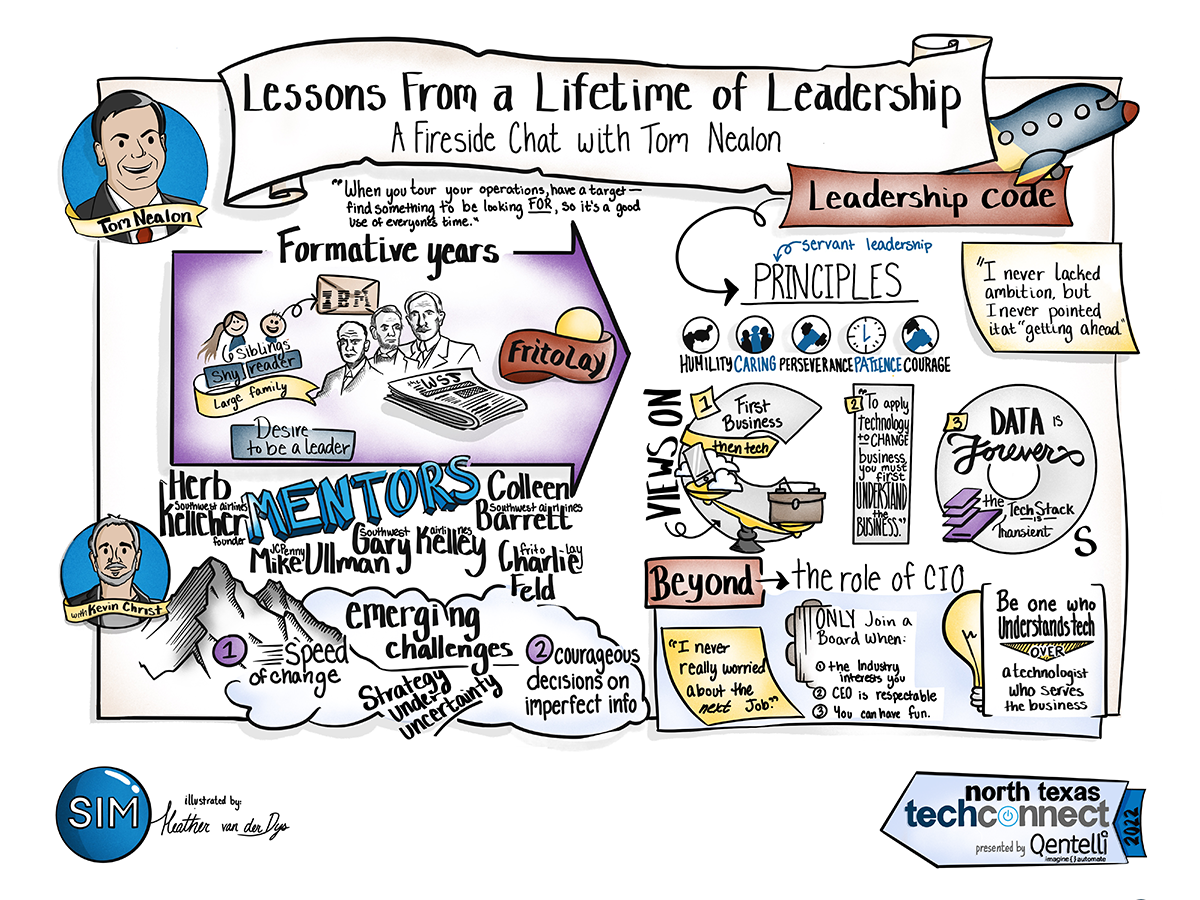 Lessons From a Lifetime of Leadership
A Fireside Chat with Tom Nealon
Tom Nealon
"When you tour your operations, have a target—
find something to be looking FOR, so it's a good
use of everyone's time."
Formative years
IBM
Siblings
Shy reader
Large family
Desire
to be a leader
the WSJ
FritoLay
MENTORS
Herb
Southwest airlines
Kelleher
founder
JCPenny
Mike Ullman
Southwest airlines
Gary Kelley
Colleen
Southwest airlines
Barrett
frito lay
Charlie
Feld
with Kevin Christ
emerging
challenges
1
Speed
of change
Strategy
Under
uncertainty
2 courageous
decisions on
imperfect info
Leadership code
servant leadership
PRINCIPLES
HUMILITY CARING PERSEVERANCE PATIENCE COURAGE
"I never lacked
ambition, but
I never pointed
it at "getting ahead"
VIEWS ON
1 First
Business
then tech
2 "To apply
technology
to CHANGE
business,
you must
first
UNDERSTAND
the
BUSINESS."
3 DATA is
Forever
the Tech Stack
is
Transient
S
Beyond → the role of CIO
"I never
really worried
about the
next Job."
ONLY Join a
Board when:
① the Industry
interests you
② CEO is respectable
③ You can have fun.
Be one who
Understands tech
OVER
a technologist
who serves
the business
SIM
illustrated by:
Heather van der Dys
north texas
techconnect
presented by Qentelli
imagine {} automate
2022